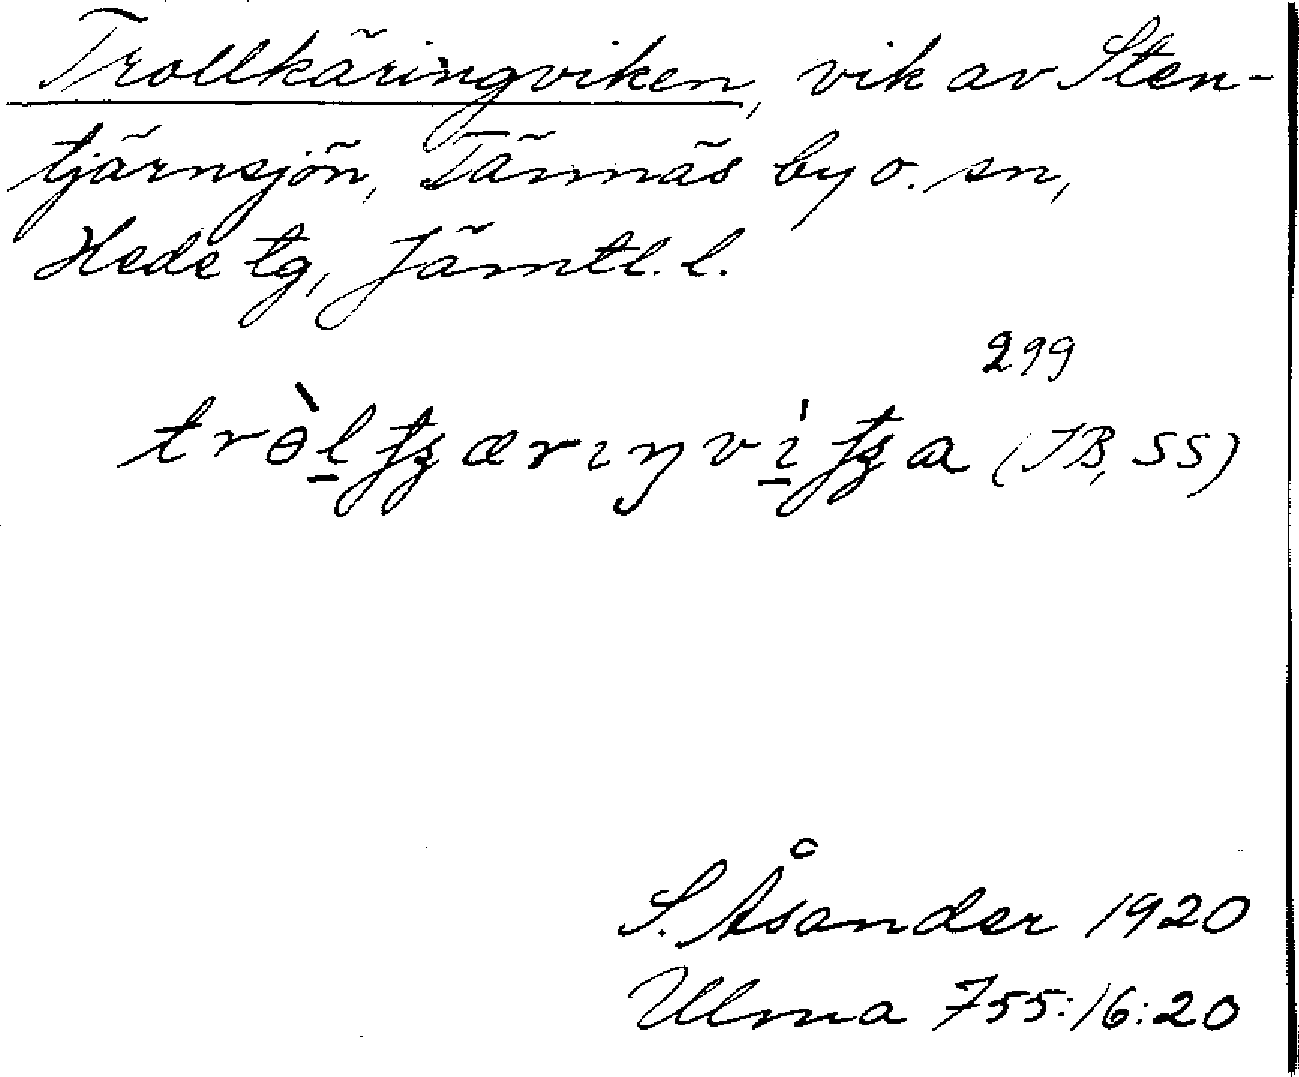 Trollkäringviken, vik av Sten-
tjärnsjön, Tännäs by o. sn,
Hede tg, Jämtl. l.
299
trɵ̀l̠ tʂærıŋvi̠tʂa (JB, SS)
S. Åsander 1920
Ulma 755:16:20